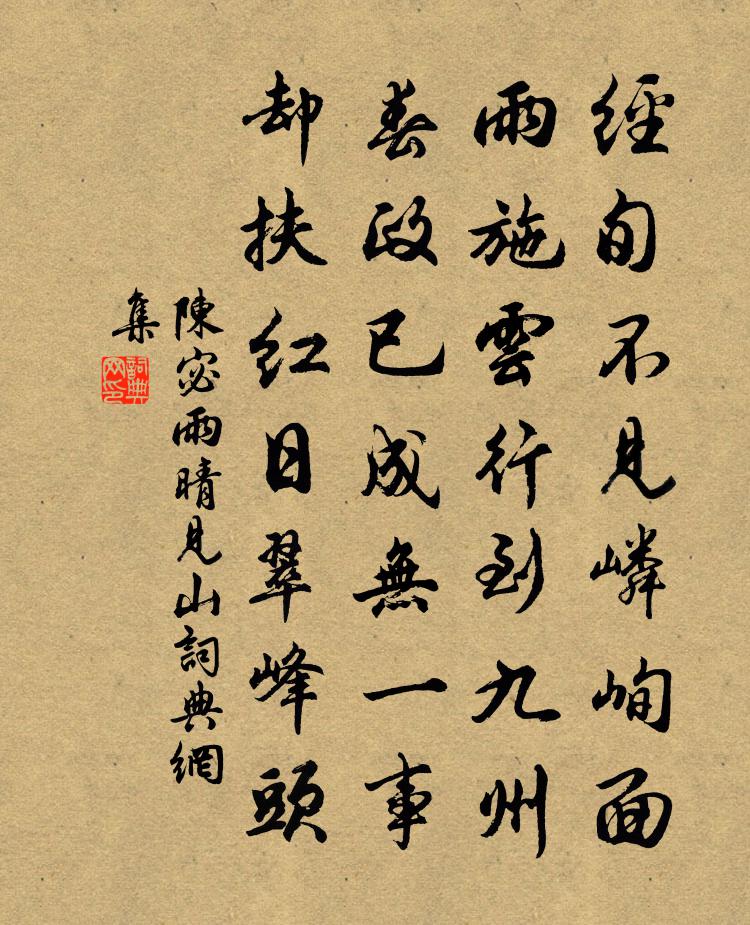 經旬不見嶙峋面
雨施雲行到九州
春政已成無一事
却扶紅日翠峰頭
陳宓雨晴見山詞典網
集
詞典
网印